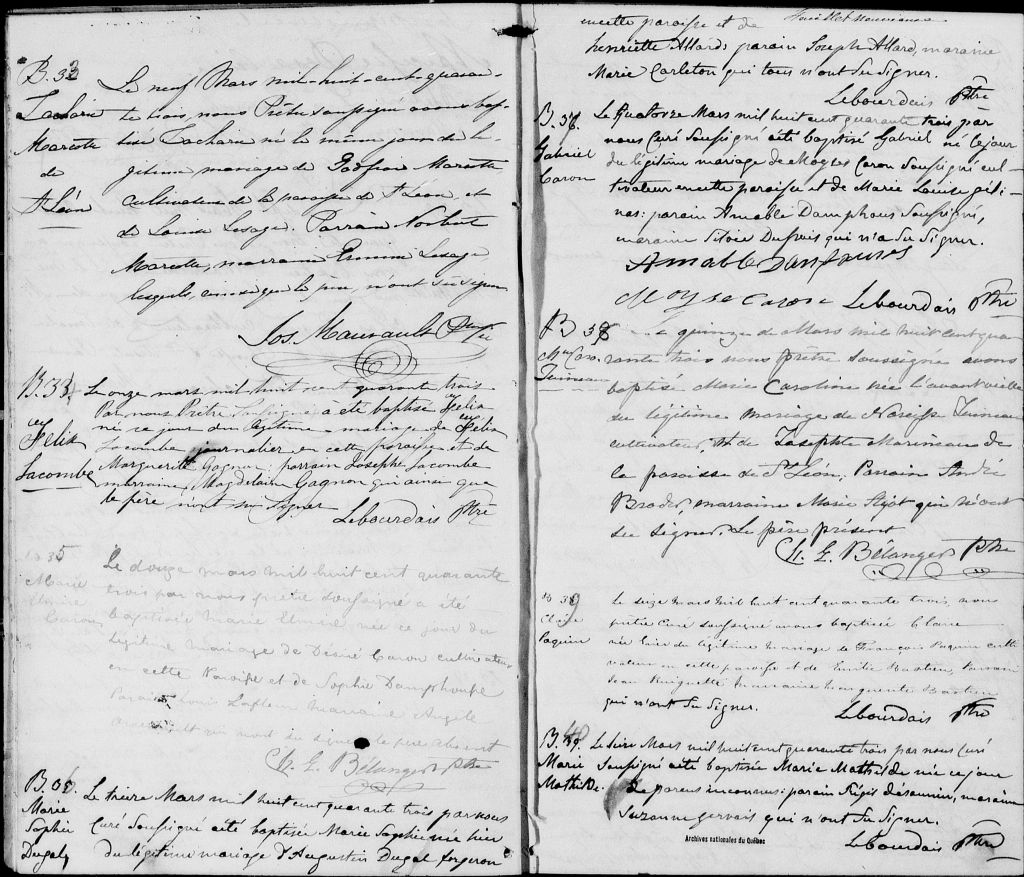 B. 33
Zacharie
Marcotte
de
St Léon
Le neuf Mars mil-huit-cent-quaran-
te trois, nous Prêtre soussigné avons bap-
tisé Zacharie né le même jour du lé-
gitime mariage de Godfroi Marcotte
cultivateur de la paroisse de St Léon et
de Louise Lesage. Parrain Norbert
Marcotte, marraine Lesage,
lesquels, ainsi que le père, n'ont su signer
Jos. Maurault Ptre
B. 34
Felix
Lacombe
Le onze mars mil huit cent quarante trois
Par nous Prêtre Soussigné a été baptisé Felix
né ce jour du légitime mariage de Felix
Lacombe journalier en cette paroisse et de
Marguerite Gagnon, parrain Joseph Lacombe
marraine Magdelaine Gagnon qui ainsi que
le père n'ont su signer
Lebourdais Ptre
B 35
Marie
Caron
Le douze mars mil huit cent quarante
trois par nous prêtre soussigné a été
baptisée Marie née ce jour du
légitime mariage de Désiré Caron cultivateur
en cette Paroisse et de Sophie Damphousse
Parain Louis Marraine Angele
qui n'ont su signer le père absent
Ch. E. Bélanger Ptre
B. 36.
Marie
Sophie
Dugal
Le treize Mars mil huit cent quarante trois par nous
Curé Soussigné a été baptisée Marie Sophie née hier
du légitime mariage d'Augustin Dugal forgeron
en cette paroisse et de
henriette Allard; parain Joseph Allard, maraine
Marie Carleton qui tous n'ont Su Signer.
Lebourdais Ptre
B. 37.
Gabriel
Caron
Le Quatorze Mars mil huit cent quarante trois par
nous Curé Soussigné a été baptisé Gabriel né le jour
du légitime mariage de Moyse Caron Soussigné cul-
tivateur en cette paroisse et de Marie Louise Géli-
nas: parain Amable Damphous Soussigné,
maraine Dupuis qui n'a Su Signer.
Amable Danfouses
Moyse Caron Lebourdais Ptre
B 38
Mie Caro.
Juineau
Le quinze de Mars mil huit cent qua-
rante trois nous prêtre soussigné avons
baptisé Marie Caroline née l'avant veille
du légitime mariage de Narcisse Juineau
cultivateur, & de Josephte Marineau de
la paroisse de St Léon; Parrain André
marraine Marie qui n'ont
su signer. Le père présent
Ch. E. Bélanger Ptre
B 39
Claire
Paquin
Le seize mars mil huit cent quarante trois, nous
prêtre Curé soussigné avons baptisée Claire
née hier du légitime mariage de François Paquin culti-
vateur en cette paroisse et de Emilie Bastien, Parrain
Jean Marraine Marguerite Bastien
qui n'ont Su Signer.
Lebourdais Ptre
B. 40
Marie
Mathilde.
Le Seize Mars mil huit cent quarante trois par nous Curé
Soussigné a été baptisée Marie Mathilde née ce jour
de parens inconnus: parain Régis désaunier, maraine
Suzanne gervais qui n'ont Su Signer.
Lebourdais Ptre
Archives nationales du Québec